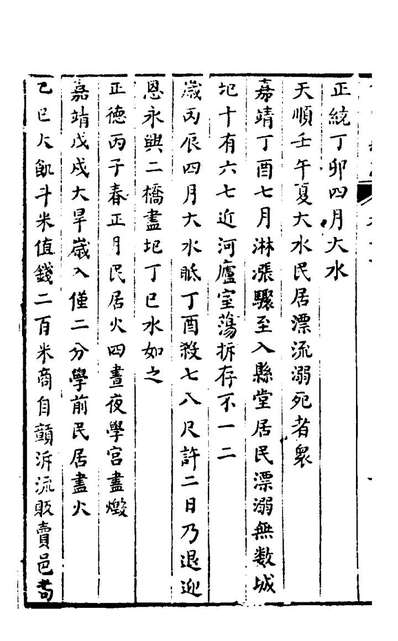 正統丁卯四月大水
天順壬午夏大水民居漂流溺死者衆
嘉靖丁酉七月淋漲驟至入縣堂居民漂溺無数城
圮十有六七近河廬室蕩拆存不一二
嵗丙辰四月大水眡丁酉殺七八尺許二日乃退迎
恩永興二橋盡圮丁巳水如之
正德丙子春正月民居火四晝夜學宫盡燬
嘉靖戊戌大旱嵗入僅二分學前民居盡火
己巳大飢斗米值錢二百米商自贛泝流販賣邑苟